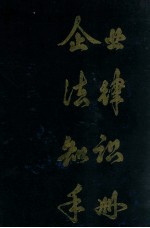 企业
法律
知识
手册